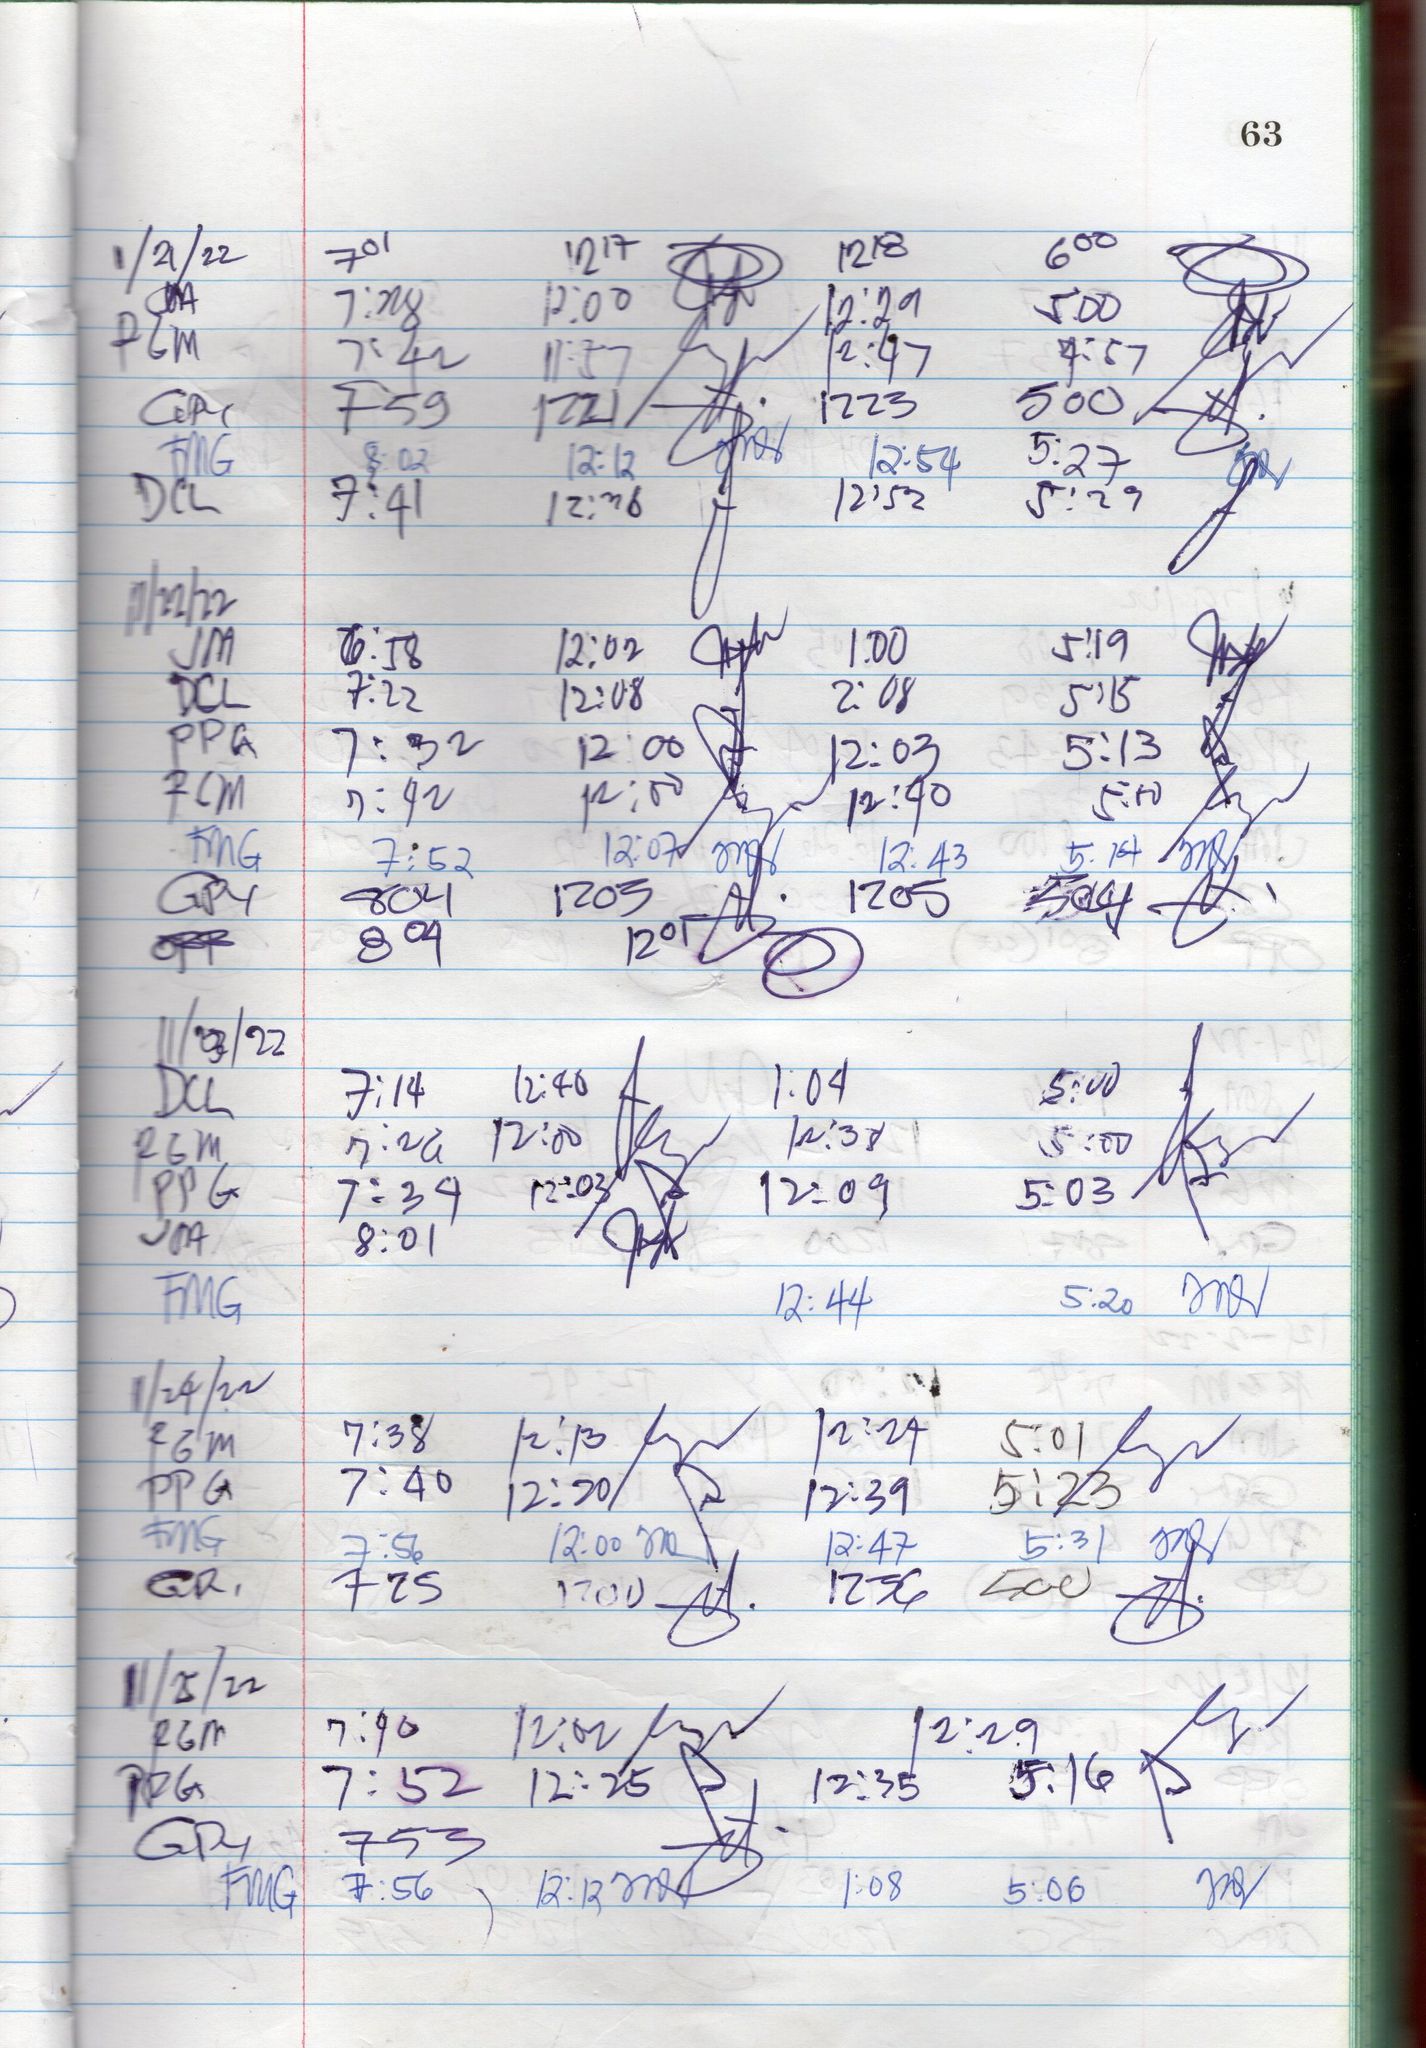 63
11/21/22 7 01 12 17 12 18 6 00
JMA 7:28 12:00 12:29 5:00
RGM 7:42 11:57 12:47 4:57
759 1221 1223 500
FMG 8:02 12:12 12:54 5:27
DCL 7:41 12:52 5:29
11/22/22
JMA 6:58 12:02 1:00 5:19
DCL 7:22 12:08 2:08 5:15
PPG 7:32 12:00 12:03 5:13
RGM 7:42 12:00 12:40 5:00
FMG 7:52 12:07 12:43 5:14
804 1205 1205 504
8 04 12 01
11/23/22
DCL 7:14 12:40 1:04 5:00
RGM 12:00 5:00
PPG 7:34 12:03 12:09 5:03
JMA 8:01
FMG 12:44 5:20
11/24/22
RGM 7:38 12:13 12:24 5:01
PPG 7:40 12:20 12:39 5:23
FMG 7:56 12:00 12:47 5:31
725 1200 1256 500
11/25/22
RGM 7:40 12:02 12:29
PPG 7:52 12:25 12:35 5:16
753
FMG 7:56 12:12 1:08 5:06